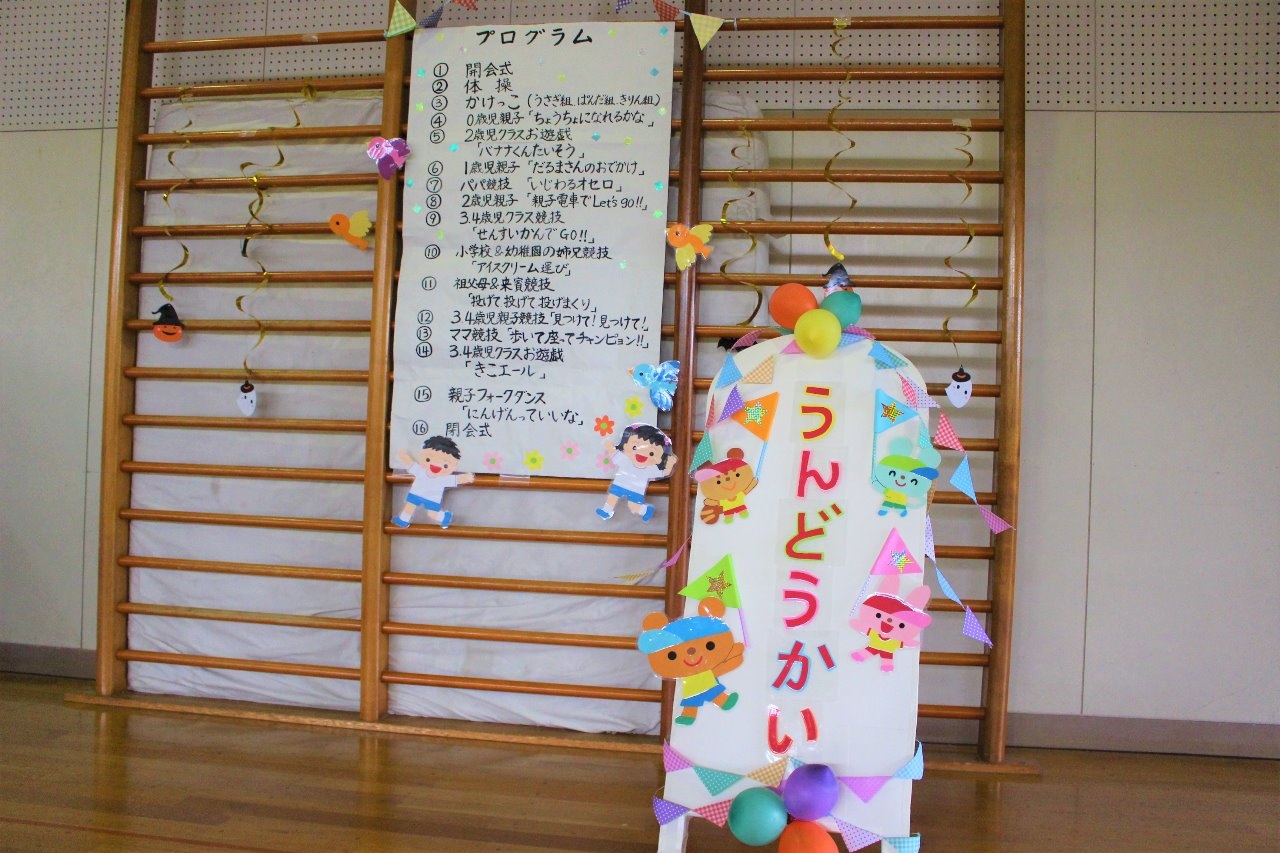 プログラム
① 開会式
② 体操
③ かけっこ（うさぎ組、ぱんだ組、きりん組）
④ 0歳児親子「ちょうちょになれるかな」
⑤ 2歳児クラスお遊戯
「バナナくんたいそう」
⑥ 1歳児親子「だるまさんのおでかけ」
⑦ パパ競技「いじわるオセロ」
⑧ 2歳児親子「親子電車でLet's go!!」
⑨ 3.4歳児クラス競技
「せんすいかんでGO!!」
⑩ 小学校&幼稚園の姉兄競技
「アイスクリーム運び」
⑪ 祖父母&来賓競技
「投げて投げて投げまくり」
⑫ 3.4歳児親子競技「見つけて!見つけて!」
⑬ ママ競技「歩いて座ってチャンピョン!!」
⑭ 3.4歳児クラスお遊戯
「きこエール」
⑮ 親子フォークダンス
「にんげんっていいな」
⑯ 閉会式
うんどうかい